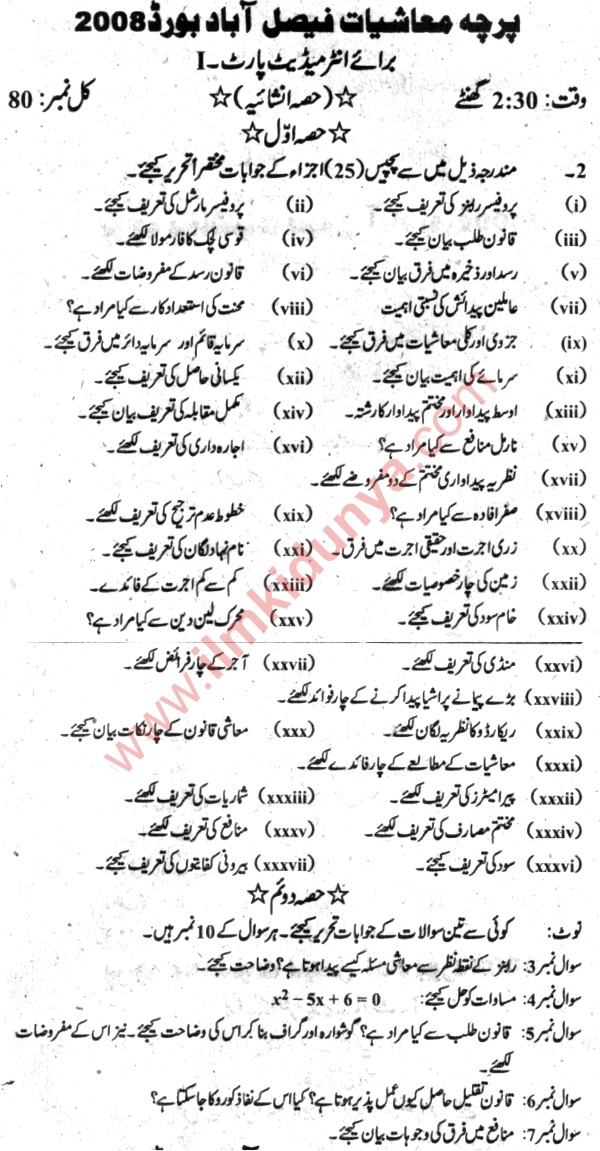 پرچہ معاشیات فیصل آباد بورڈ 2008
برائے انٹرمیڈیٹ پارٹ ۔I
وقت: 2:30 گھنٹے ☆(حصہ انشائیہ)☆ کل نمبر: 80
☆حصہ اوّل☆
2۔ مندرجہ ذیل میں سے پچیس (25) اجزاء کے جوابات مختصراً تحریر کیجئے۔
(i) پروفیسر رابنز کی تعریف کیجئے۔ (ii) پروفیسر مارشل کی تعریف کیجئے۔
(iii) قانون طلب بیان کیجئے۔ (iv) قوسی لچک کا فارمولا لکھئے۔
(v) رسد اور ذخیرہ میں فرق بیان کیجئے۔ (vi) قانون رسد کے مفروضات لکھئے۔
(vii) عاملین پیدائش کی نسبتی اہمیت (viii) محنت کی استعداد کار سے کیا مراد ہے؟
(ix) جزوی اور کلی معاشیات میں فرق کیجئے۔ (x) سرمایہ قائم اور سرمایہ دائر میں فرق کیجئے۔
(xi) سرمائے کی اہمیت بیان کیجئے۔ (xii) یکسانی حاصل کی تعریف کیجئے۔
(xiii) اوسط پیداوار اور مختتم پیداوار کا رشتہ۔ (xiv) مکمل مقابلہ کی تعریف بیان کیجئے۔
(xv) نارمل منافع سے کیا مراد ہے؟ (xvi) اجارہ داری کی تعریف لکھئے۔
(xvii) نظریہ پیداواری مختتم کے دو مفروضے لکھئے۔
(xviii) صفر افادہ سے کیا مراد ہے؟ (xix) خطوط عدم ترجیح کی تعریف لکھئے۔
(xx) زری اجرت اور حقیقی اجرت میں فرق۔ (xxi) نام نہاد لگان کی تعریف کیجئے۔
(xxii) زمین کی چار خصوصیات لکھئے۔ (xxiii) کم سے کم اجرت کے فائدے۔
(xxiv) خام سود کی تعریف کیجئے۔ (xxv) محرک لین دین سے کیا مراد ہے؟
(xxvi) منڈی کی تعریف لکھئے۔ (xxvii) آجر کے چار فرائض لکھئے۔
(xxviii) بڑے پیمانے پر اشیا پیدا کرنے کے چار فوائد لکھئے۔
(xxix) ریکارڈو کا نظریہ لگان لکھئے۔ (xxx) معاشی قانون کے چار نکات بیان کیجئے۔
(xxxi) معاشیات کے مطالعے کے چار فائدے لکھئے۔
(xxxii) پیرامیٹرز کی تعریف لکھئے۔ (xxxiii) شماریات کی تعریف لکھئے۔
(xxxiv) مختتم مصارف کی تعریف لکھئے۔ (xxxv) منافع کی تعریف لکھئے۔
(xxxvi) سود کی تعریف کیجئے۔ (xxxvii) بیرونی کفایتوں کی تعریف کیجئے۔
☆حصہ دوئم☆
نوٹ: کوئی سے تین سوالات کے جوابات تحریر کیجئے۔ ہر سوال کے 10 نمبر ہیں۔
سوال نمبر 3: رابنز کے نقطہ نظر سے معاشی مسئلہ کیسے پیدا ہوتا ہے؟ وضاحت کیجئے۔
سوال نمبر 4: مساوات کو حل کیجئے: x² – 5x + 6 = 0
سوال نمبر 5: قانون طلب سے کیا مراد ہے؟ گوشوارہ اور گراف بنا کر اس کی وضاحت کیجئے۔ نیز اس کے مفروضات
لکھئے۔
سوال نمبر 6: قانون تقلیل حاصل کیوں عمل پذیر ہوتا ہے؟ کیا اس کے نفاذ کو روکا جا سکتا ہے؟
سوال نمبر 7: منافع میں فرق کی وجوہات بیان کیجئے۔
www.ilmkidunya.com